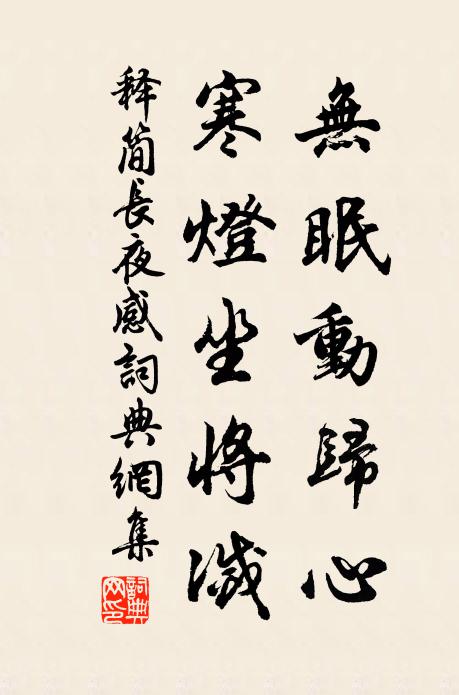 無眠動歸心
寒燈坐將滅
释简長夜感詞典網集
詞典網印